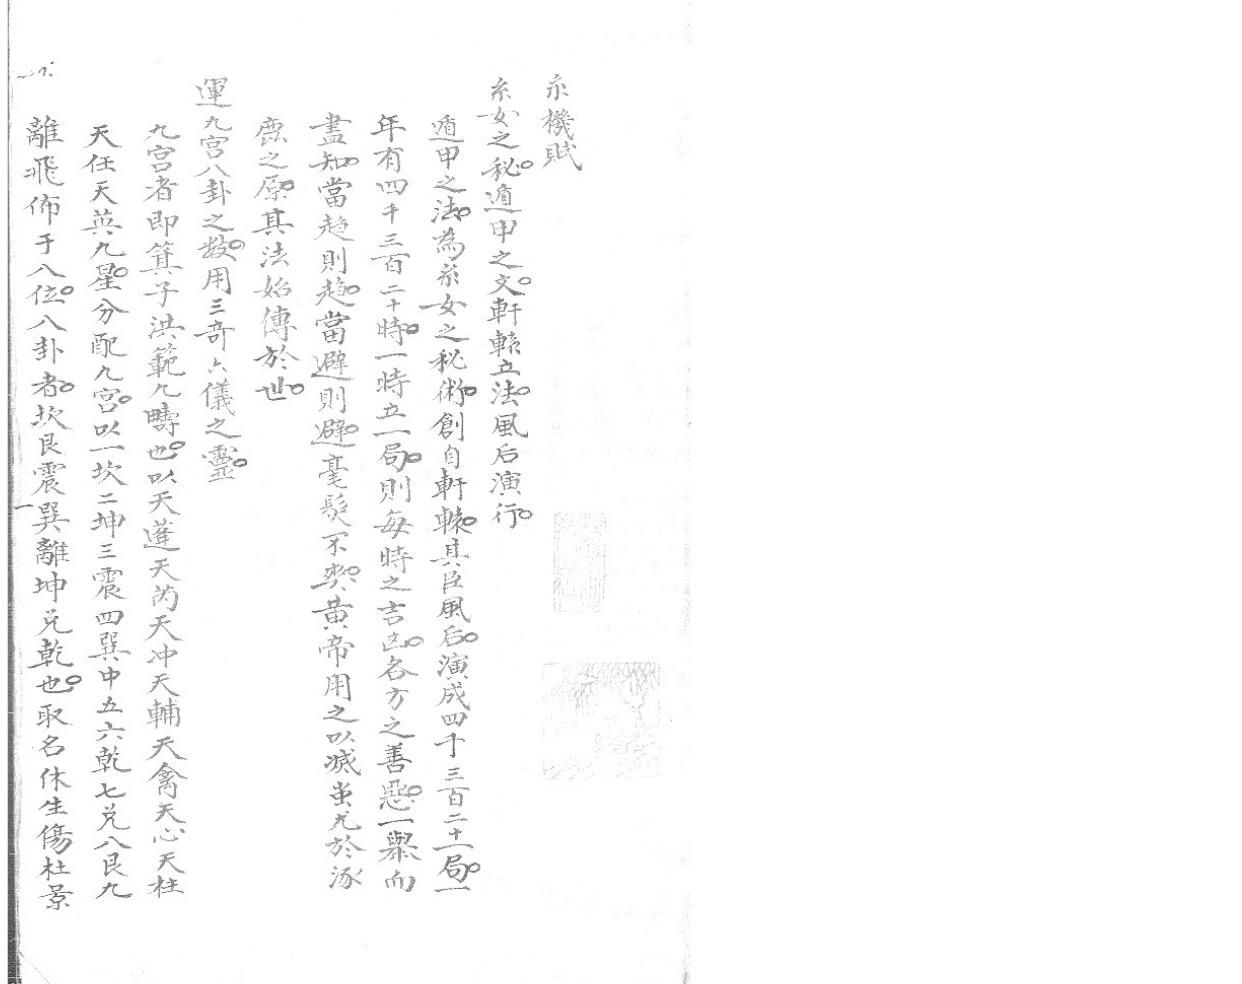 永機賦
糸女之秘遁甲之文軒轅立法風后演行
遁甲之法為糸女之秘術創自軒轅其臣風后演成四千三百二十一局一
年有四千三百二十時一時立一局則每時之吉凶各方之善惡一舉而
盡知當趨則趨當避則避毫髮不爽黃帝用之以滅蚩尤於涿
鹿之原其法始傳於世
運九宮八卦之数用三奇六儀之靈
九宮者即箕子洪範九疇也以天蓬天芮天冲天輔天禽天心天柱
天任天英九星分配九宮以一坎二坤三震四巽中五六乾七兑八艮九
離飛佈于八位八卦者坎艮震巽離坤兑乾也取名休生傷杜景